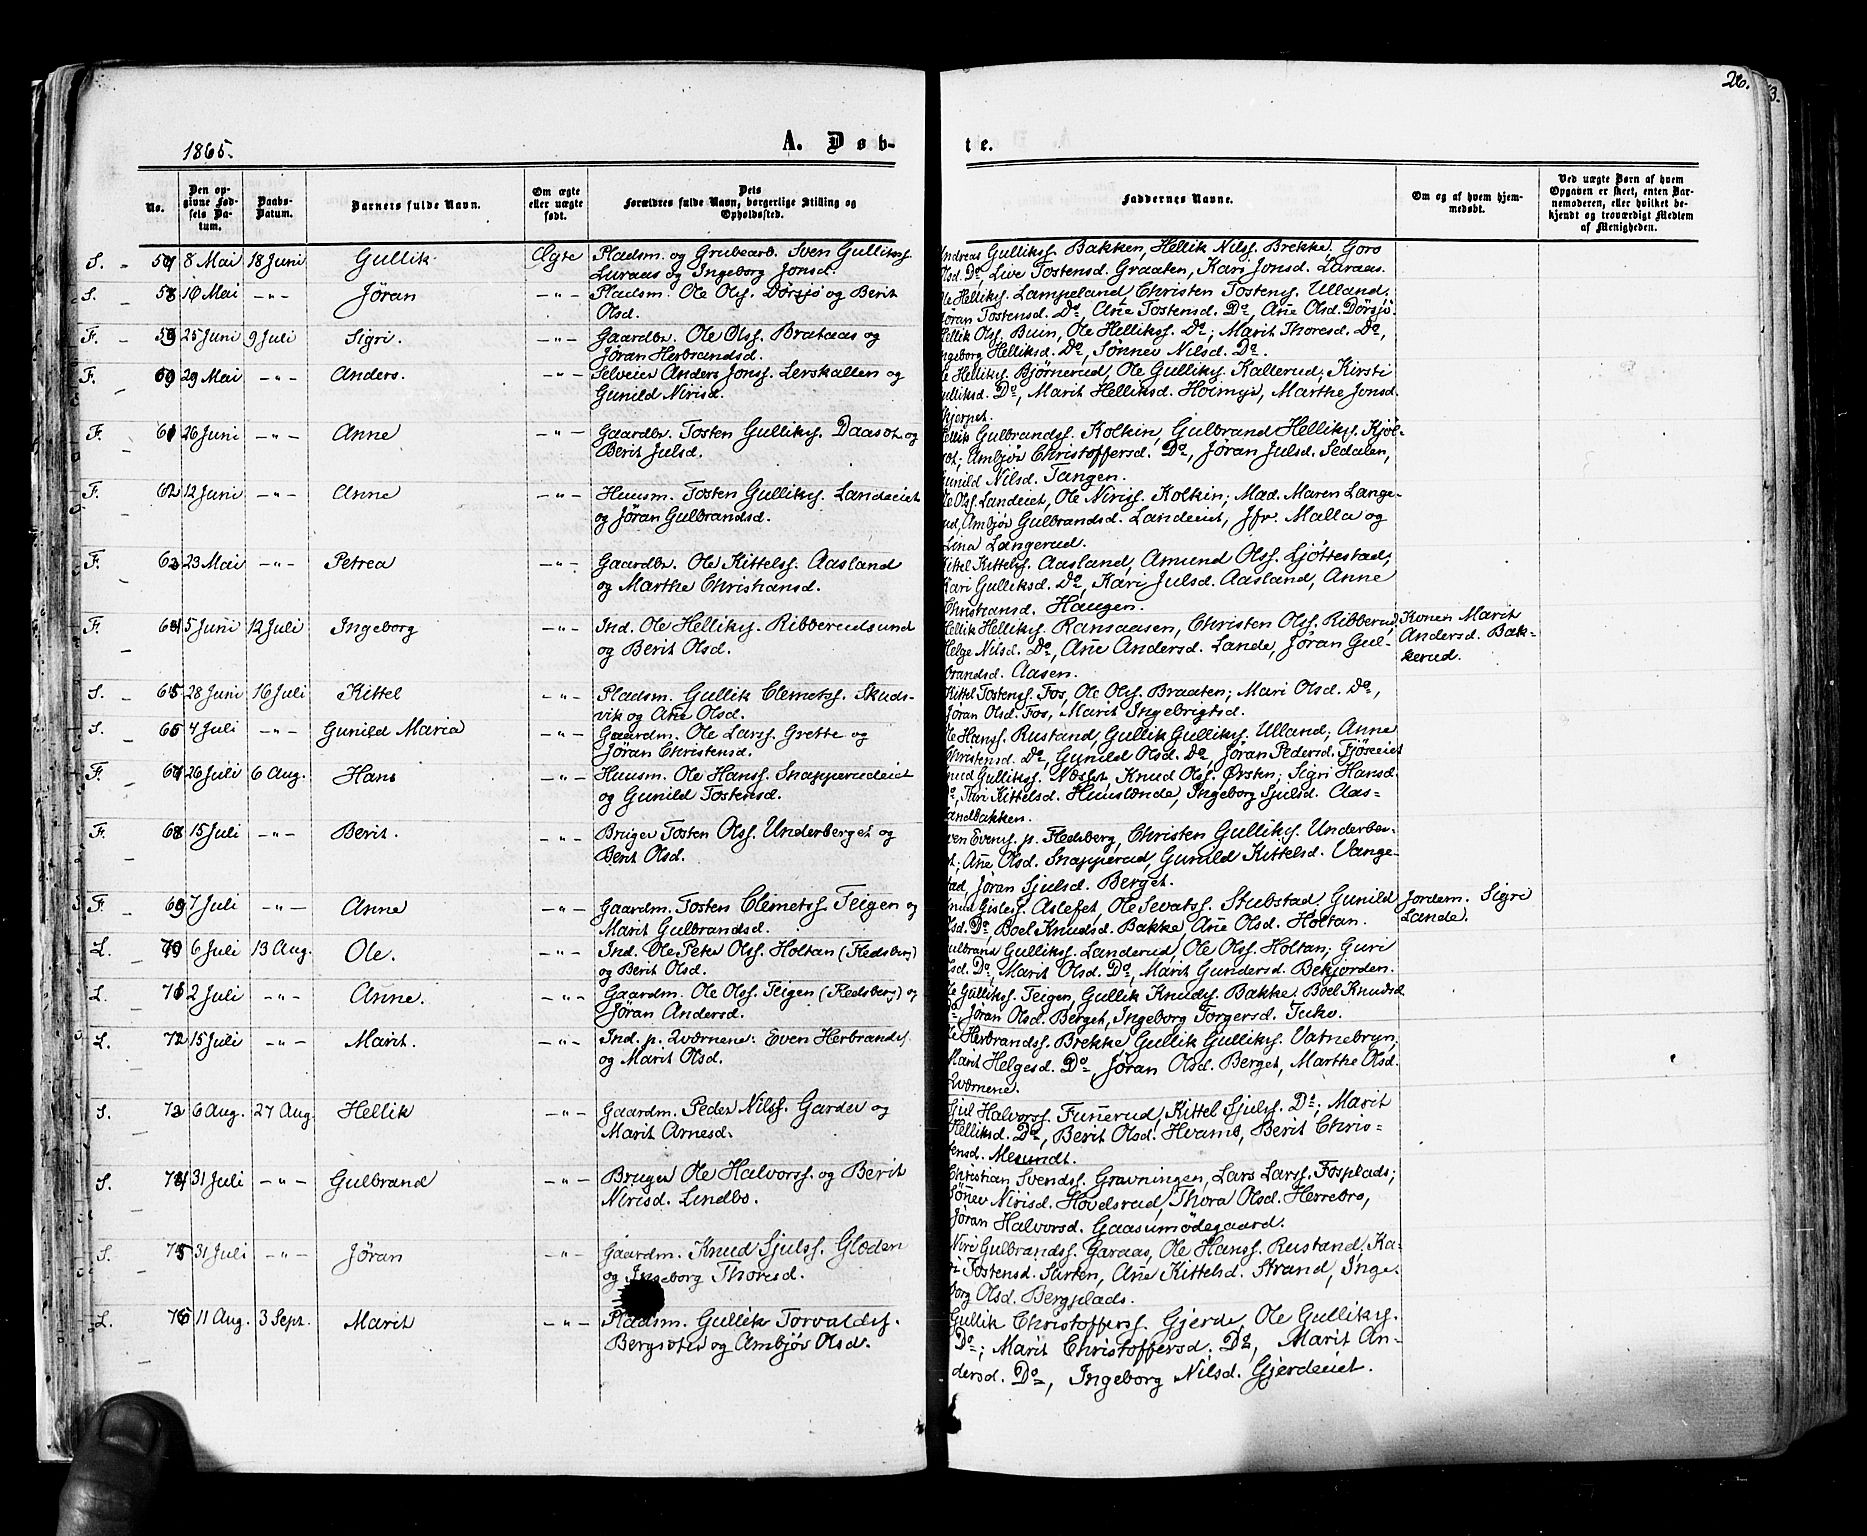 26.
3.
1865.
A. Døb-
te.
No.
Den op-
givne Fød-
sels Da-
tum.
Daabs-
Datum.
Barnets fulde Navn.
Om ægte
eller uægte
født.
Dets
Forældres fulde Navn, borgerlige Stilling og
Opholdssted.
Faddernes Navne.
Om og af hvem hjem-
medøbt.
Ved uægte Børn af hvem
Opgaven er skeet, enten Bar-
nemoderen, eller hvilket be-
kjendt og troværdigt Medlem
af Menigheden.
S. 57 8 Mai 18 Juni Gullik Ægte Pladsm. og Grubearb. Sven Gulliks.
Luraas og Ingeborg Jonsd.
Andreas Gulliks. Bakken, Hellik Nilss. Brekke, Goro
Olsd. Do, Live Tostensd. Graaten, Kari Jonsd. Luraas.
S. 58 10 Mai -"- Jøran -"- Pladsm. Ole Ols. Dørsjø og Berit
Olsd.
Ole Helliks. Lampeland, Christen Tostens. Ulland;
Jøran Tostensd. Do, Ane Tostensd. Do, Ane Olsd. Dørsjø
F. 59 25 Juni 9 Juli Sigri. -"- Gaardbr. Ole Olss. Brataas og
Jøran Herbrandsd.
Hellik Ols. Buin, Ole Hellikss. Do; Marit Thoresd. Do,
Ingeborg Helliksd. Do, Sønnev Nilsd. Do.
F. 60 29 Mai -"- Anders. -"- Selveier Anders Jonss. Lerskallen og
Gunild Nirisd.
Ole Helliks. Bjørnerud, Ole Gulliks. Kallerud; Kirsti
Gulliksd. Do, Marit Helliksd. Hoimyr, Marthe Jonsd.
F. 61 26 Juni -"- Anne -"- Gaardbr. Tosten Gulliks. Daaset og
Berit Julsd.
Hellik Gulbrandss. Kolkin, Gulbrand Helliks. Kjøl-
Ambjør Christoffersd. Do, Jøran Julsd. Sedalen,
Gunild Nilsd. Tangen.
F. 62 12 Juni -"- Anne -"- Huusm. Tosten Gulliks. Landeeiet
og Jøran Gulbrandsd.
Ole Olss. Landeeiet, Ole Niriss. Kolkin; Mad. Maren Lange-
rud, Ambjør Gulbrandsd. Landeeiet, Jfr. Malla og
Lina Langerud.
F. 63 23 Mai -"- Petrea -"- Gaardbr. Ole Kittelss. Aasland
og Marthe Christiansd.
Kittel Kittels. Aasland, Amund Olss. Sjøttestad;
Kari Gulliksd. Do, Kari Julsd. Aasland, Anne
Christiansd. Haugen.
F. 64 5 Juni 12 Juli Ingeborg -"- Ind. Ole Helliks. Ribberudsund
og Berit Olsd.
Hellik Helliks. Ransaasen, Christen Olss. Ribberud,
Helge Nilsd. Do, Ane Andersd. Lande, Jøran Gul-
brandsd. Aasen.
Konen Marit
Andersd. Bak-
kerud.
S. 65 28 Juni 16 Juli Kittel -"- Pladsm. Gullik Clemetss. Skuds-
vik og Ane Olsd.
Kittel Tostenss. Fos, Ole Ols. Braaten; Mari Olsd. Do,
Jøran Olsd. Fos, Marit Ingebrigtsd.
S. 66 4 Juli -"- Gunild Maria -"- Gaardm. Ole Larss. Grette og
Jøran Christensd.
Ole Hanss. Rustand, Gullik Gulliks. Ulland; Anne
Christensd. Do, Gunild Olsd. Do, Jøran Pedersd. Tjøseeiet
F. 67 26 Juli 6 Aug. Hans -"- Huusm. Ole Hanss. Snapperudeiet
og Gunild Tostensd.
Knud Gulliks. Næset, Knud Olss. Ørsten; Sigri Hansd.
Do, Turi Kittelsd. Huuslænde, Ingeborg Sjulsd. Aas-
landbakken.
F. 68 15 Juli -"- Berit. -"- Bruger Tosten Olss. Underberget og
Berit Olsd.
Even Evens. p. Flesberg, Christen Gulliks. Underber-
get; Ane Olsd. Snapperud, Gunild Kittelsd. Vange-
stad, Jøran Sjulsd. Berget.
F. 69 7 Juli -"- Anne -"- Gaardm. Tosten Clemetss. Teigen og
Marit Gulbrandsd.
Knud Gisless. Aslefet, Ole Sevatss. Stubstad, Gunild
Olsd. Do, Boel Knudsd. Bakke, Ane Olsd. Holtan.
Jordem. Sigri
Lande.
L. 70 6 Juli 13 Aug. Ole. -"- Ind. Ole Peter Olss. Holtan (Flesberg)
og Berit Olsd.
Gulbrand Gulliks. Landerud, Ole Olss. Holtan; Guri
Olsd. Do, Marit Olsd. Do, Marit Gundersd. Bekjorden.
L. 71 2 Juli -"- Anne. -"- Gaardm. Ole Olss. Teigen (Flesberg) og
Jøran Andersd.
Ole Gulliks. Teigen, Gullik Knuds. Bakke, Boel Knudsd.
Do, Jøran Olsd. Berget, Ingeborg Torgersd. Juko.
L. 72 15 Juli -"- Marit. -"- Ind. p. Qværnene: Even Herbrands.
og Marit Olsd.
Ole Herbrandss. Brekke, Gullik Gulliks. Vatnebryn,
Marit Helgesd. Do, Jøran Olsd. Berget, Marthe Olsd.
Qværnene.
S. 73 6 Aug. 27 Aug. Hellik -"- Gaardm. Peder Nilss. Garder og
Marit Arnesd.
Sjul Halvorss. Funnerud, Kittel Sjulss. Do; Marit
Helliksd. Do, Berit Olsd. Hvams, Berit Chris-
tensd. Mesundt.
S. 74 31 Juli -"- Gulbrand -"- Bruger Ole Halvorss. og Berit
Nirisd. Lindbo.
Christian Svends. Gravningen, Lars Larss. Fosplads;
Sønnev Nirisd. Hovdsrud, Thora Olsd. Herrebro,
Jøran Halvorsd. Gaasumødegaard.
S. 75 31 Juli -"- Jøran -"- Gaardm. Knud Sjulss. Gløden
og Ingeborg Thoresd.
Niri Gulbrandss. Garaas, Ole Hanss. Rustand, Ka-
ri Tostensd. Surten, Ane Kittelsd. Strand, Inge-
borg Olsd. Bergplads.
L. 76 11 Aug. 3 Sept. Marit -"- Pladsm. Gullik Torvalds.
Bergseter og Ambjør Olsd.
Gullik Christofferss. Gjerde, Ole Gulliks.
Do; Marit Christoffersd. Do, Marit An-
dersd. Do, Ingeborg Nilsd. Gjerdeeiet.